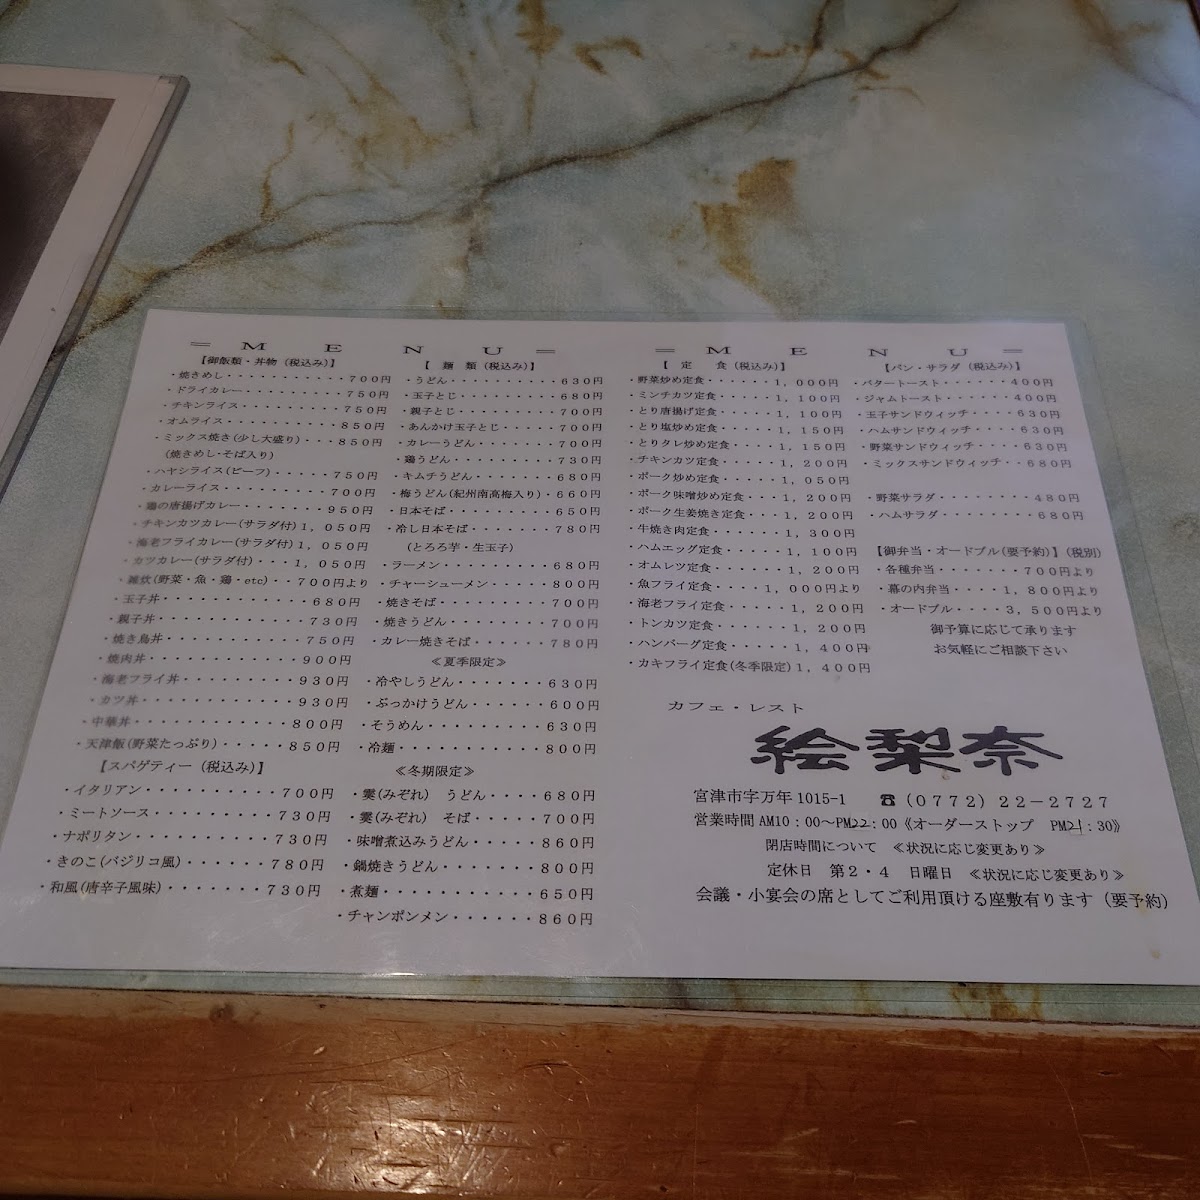 ＝ＭＥＮＵ＝
【御飯類・丼物（税込み）】
・焼きめし・・・・・・・・・・・７００円
・ドライカレー・・・・・・・・・７５０円
・チキンライス・・・・・・・・・７５０円
・オムライス・・・・・・・・・・８５０円
・ミックス焼き(少し大盛り)・・・８５０円
(焼きめし・そば入り)
・ハヤシライス(ビーフ)・・・・・７５０円
・カレーライス・・・・・・・・・７００円
・鶏の唐揚げカレー・・・・・・・９５０円
・チキンカツカレー(サラダ付)１，０５０円
・海老フライカレー(サラダ付)１，０５０円
・カツカレー(サラダ付)・・・１，０５０円
・雑炊(野菜・魚・鶏・etc)・・７００円より
・玉子丼・・・・・・・・・・・・６８０円
・親子丼・・・・・・・・・・・・７３０円
・焼き鳥丼・・・・・・・・・・・７５０円
・焼肉丼・・・・・・・・・・・・９００円
・海老フライ丼・・・・・・・・・９３０円
・カツ丼・・・・・・・・・・・・９３０円
・中華丼・・・・・・・・・・・・８００円
・天津飯(野菜たっぷり)・・・・・８５０円
【スパゲティー（税込み）】
・イタリアン・・・・・・・・・・７００円
・ミートソース・・・・・・・・・７３０円
・ナポリタン・・・・・・・・・・７３０円
・きのこ(バジリコ風)・・・・・・７８０円
・和風(唐辛子風味)・・・・・・・７３０円
【麺類（税込み）】
・うどん・・・・・・・・・・６３０円
・玉子とじ・・・・・・・・・６８０円
・親子とじ・・・・・・・・・７００円
・あんかけ玉子とじ・・・・・７００円
・カレーうどん・・・・・・・７００円
・鶏うどん・・・・・・・・・７３０円
・キムチうどん・・・・・・・６８０円
・梅うどん(紀州南高梅入り)・６６０円
・日本そば・・・・・・・・・６５０円
・冷し日本そば・・・・・・・７８０円
(とろろ芋・生玉子)
・ラーメン・・・・・・・・・６８０円
・チャーシューメン・・・・・８００円
・焼きそば・・・・・・・・・７００円
・焼きうどん・・・・・・・・７００円
・カレー焼きそば・・・・・・７８０円
≪夏季限定≫
・冷やしうどん・・・・・・・６３０円
・ぶっかけうどん・・・・・・６００円
・そうめん・・・・・・・・・６３０円
・冷麺・・・・・・・・・・・８００円
≪冬期限定≫
・霙(みぞれ)　うどん・・・・６８０円
・霙(みぞれ)　そば・・・・・７００円
・味噌煮込みうどん・・・・・８６０円
・鍋焼きうどん・・・・・・・８００円
・煮麺・・・・・・・・・・・６５０円
・チャンポンメン・・・・・・８６０円
＝ＭＥＮＵ＝
【定食（税込み）】
・野菜炒め定食・・・・・・１，０００円
・ミンチカツ定食・・・・・１，１００円
・とり唐揚げ定食・・・・・１，１００円
・とり塩炒め定食・・・・・１，１５０円
・とりタレ炒め定食・・・・１，１５０円
・チキンカツ定食・・・・・１，２００円
・ポーク炒め定食・・・・・１，０５０円
・ポーク味噌炒め定食・・・１，２００円
・ポーク生姜焼き定食・・・１，２００円
・牛焼き肉定食・・・・・・１，３００円
・ハムエッグ定食・・・・・１，１００円
・オムレツ定食・・・・・・１，２００円
・魚フライ定食・・・・１，０００円より
・海老フライ定食・・・・・１，２００円
・トンカツ定食・・・・・・１，２００円
・ハンバーグ定食・・・・・１，４００円
・カキフライ定食(冬季限定)１，４００円
【パン・サラダ（税込み）】
・バタートースト・・・・・・４００円
・ジャムトースト・・・・・・４００円
・玉子サンドウィッチ・・・・６３０円
・ハムサンドウィッチ・・・・６３０円
・野菜サンドウィッチ・・・・６３０円
・ミックスサンドウィッチ・・６８０円
・野菜サラダ・・・・・・・・４８０円
・ハムサラダ・・・・・・・・６８０円
【御弁当・オードブル(要予約)】（税別）
・各種弁当・・・・・・・７００円より
・幕の内弁当・・・・１，８００円より
・オードブル・・・・３，５００円より
御予算に応じて承ります
お気軽にご相談下さい
カフェ・レスト
絵梨奈
宮津市字万年1015-1　☎（０７７２）２２－２７２７
営業時間 AM10：00～PM22：00《オーダーストップ　PM21：30》
閉店時間について　≪状況に応じ変更あり≫
定休日　第２・４　日曜日　≪状況に応じ変更あり≫
会議・小宴会の席としてご利用頂ける座敷有ります（要予約）